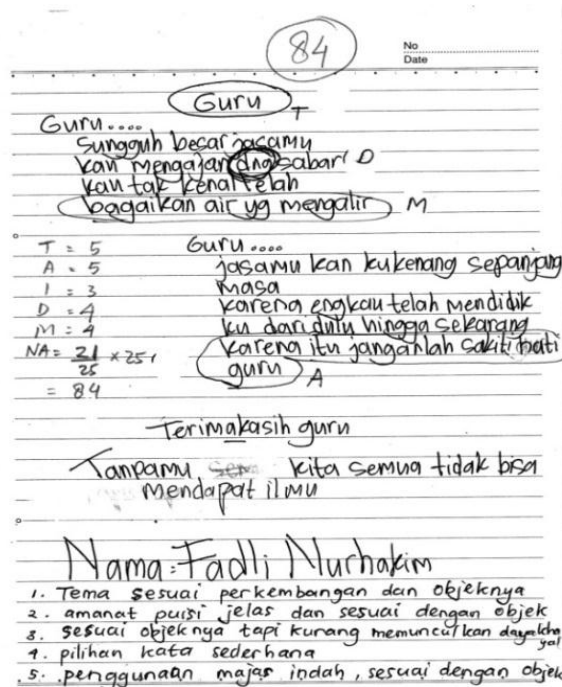 84
No
Date
Guru
T
Guru....
Sungguh besar jasamu
kau mengajar dng sabar D
kau tak kenal lelah
bagaikan air yg mengalir M
T = 5
A = 5
I = 3
D = 4
M = 4
NA = 21/25 × 25
= 84
Guru....
jasamu kan kukenang sepanjang
masa
karena engkau telah mendidik
ku dari dulu hingga sekarang
karena itu janganlah sakiti hati
guru A
Terimakasih guru
Tanpamu kita semua tidak bisa
mendapat ilmu
Nama : Fadli Nurhakim
1. Tema sesuai perkembangan dan objeknya
2. amanat puisi jelas dan sesuai dengan objek
3. sesuai objeknya tapi kurang memunculkan daya khayal
4. pilihan kata sederhana
5. penggunaan majas indah, sesuai dengan objek